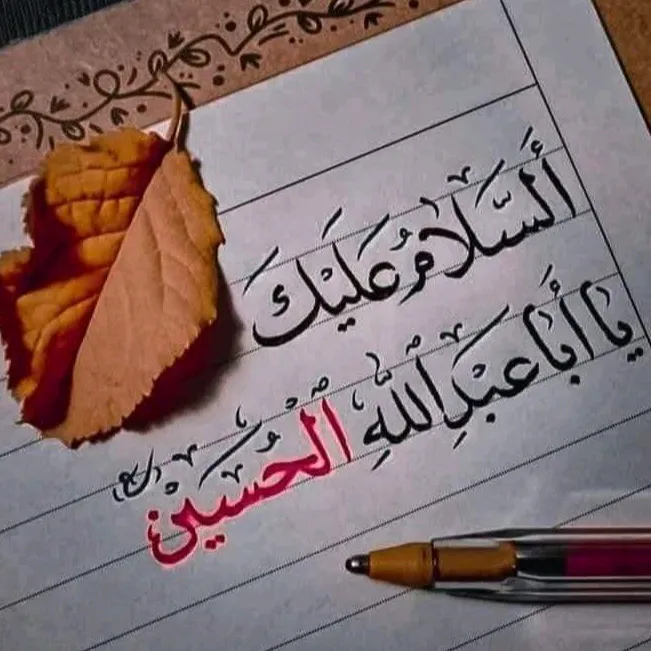 اَلسَّلَامُ عَلَيْكَ
يا أَبا عَبْدِ اللّٰهِ الْحُسَيْن